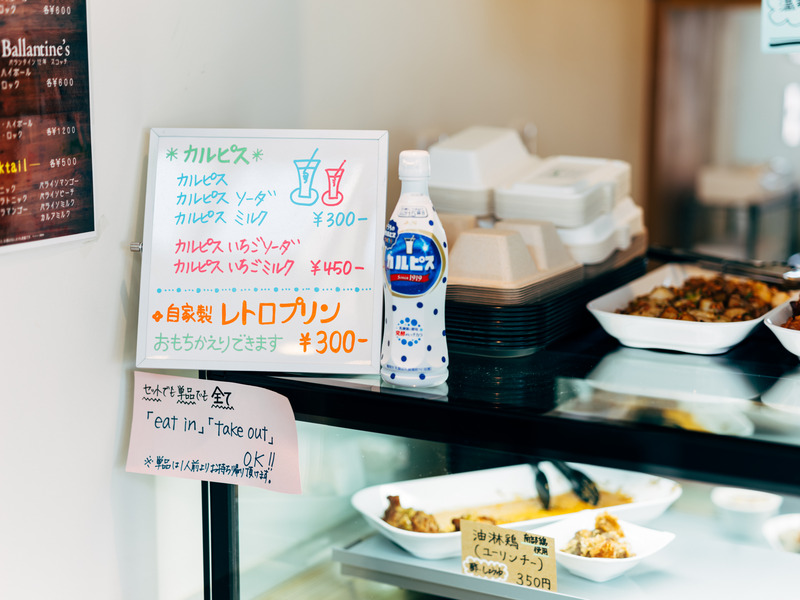 各¥600
Ballantine's
バランタイン12年 スコッチ
ハイボール
ロック 各¥600
・ハイボール
・ロック 各¥1200
ktail — 各¥500
パライソマンゴー
パライソピーチ
パライソミルク
カルアミルク
＊カルピス＊
カルピス
カルピス ソーダ
カルピス ミルク ¥300-
カルピス いちごソーダ
カルピス いちごミルク ¥450-
自家製 レトロプリン
おもちかえりできます ¥300-
カルピス
Since 1919
セットでも単品でも全て
「eat in」「take out」
OK!!
※単品は1人前よりお持ち帰り頂けます。
油淋鶏
(ユーリンチー)
350円